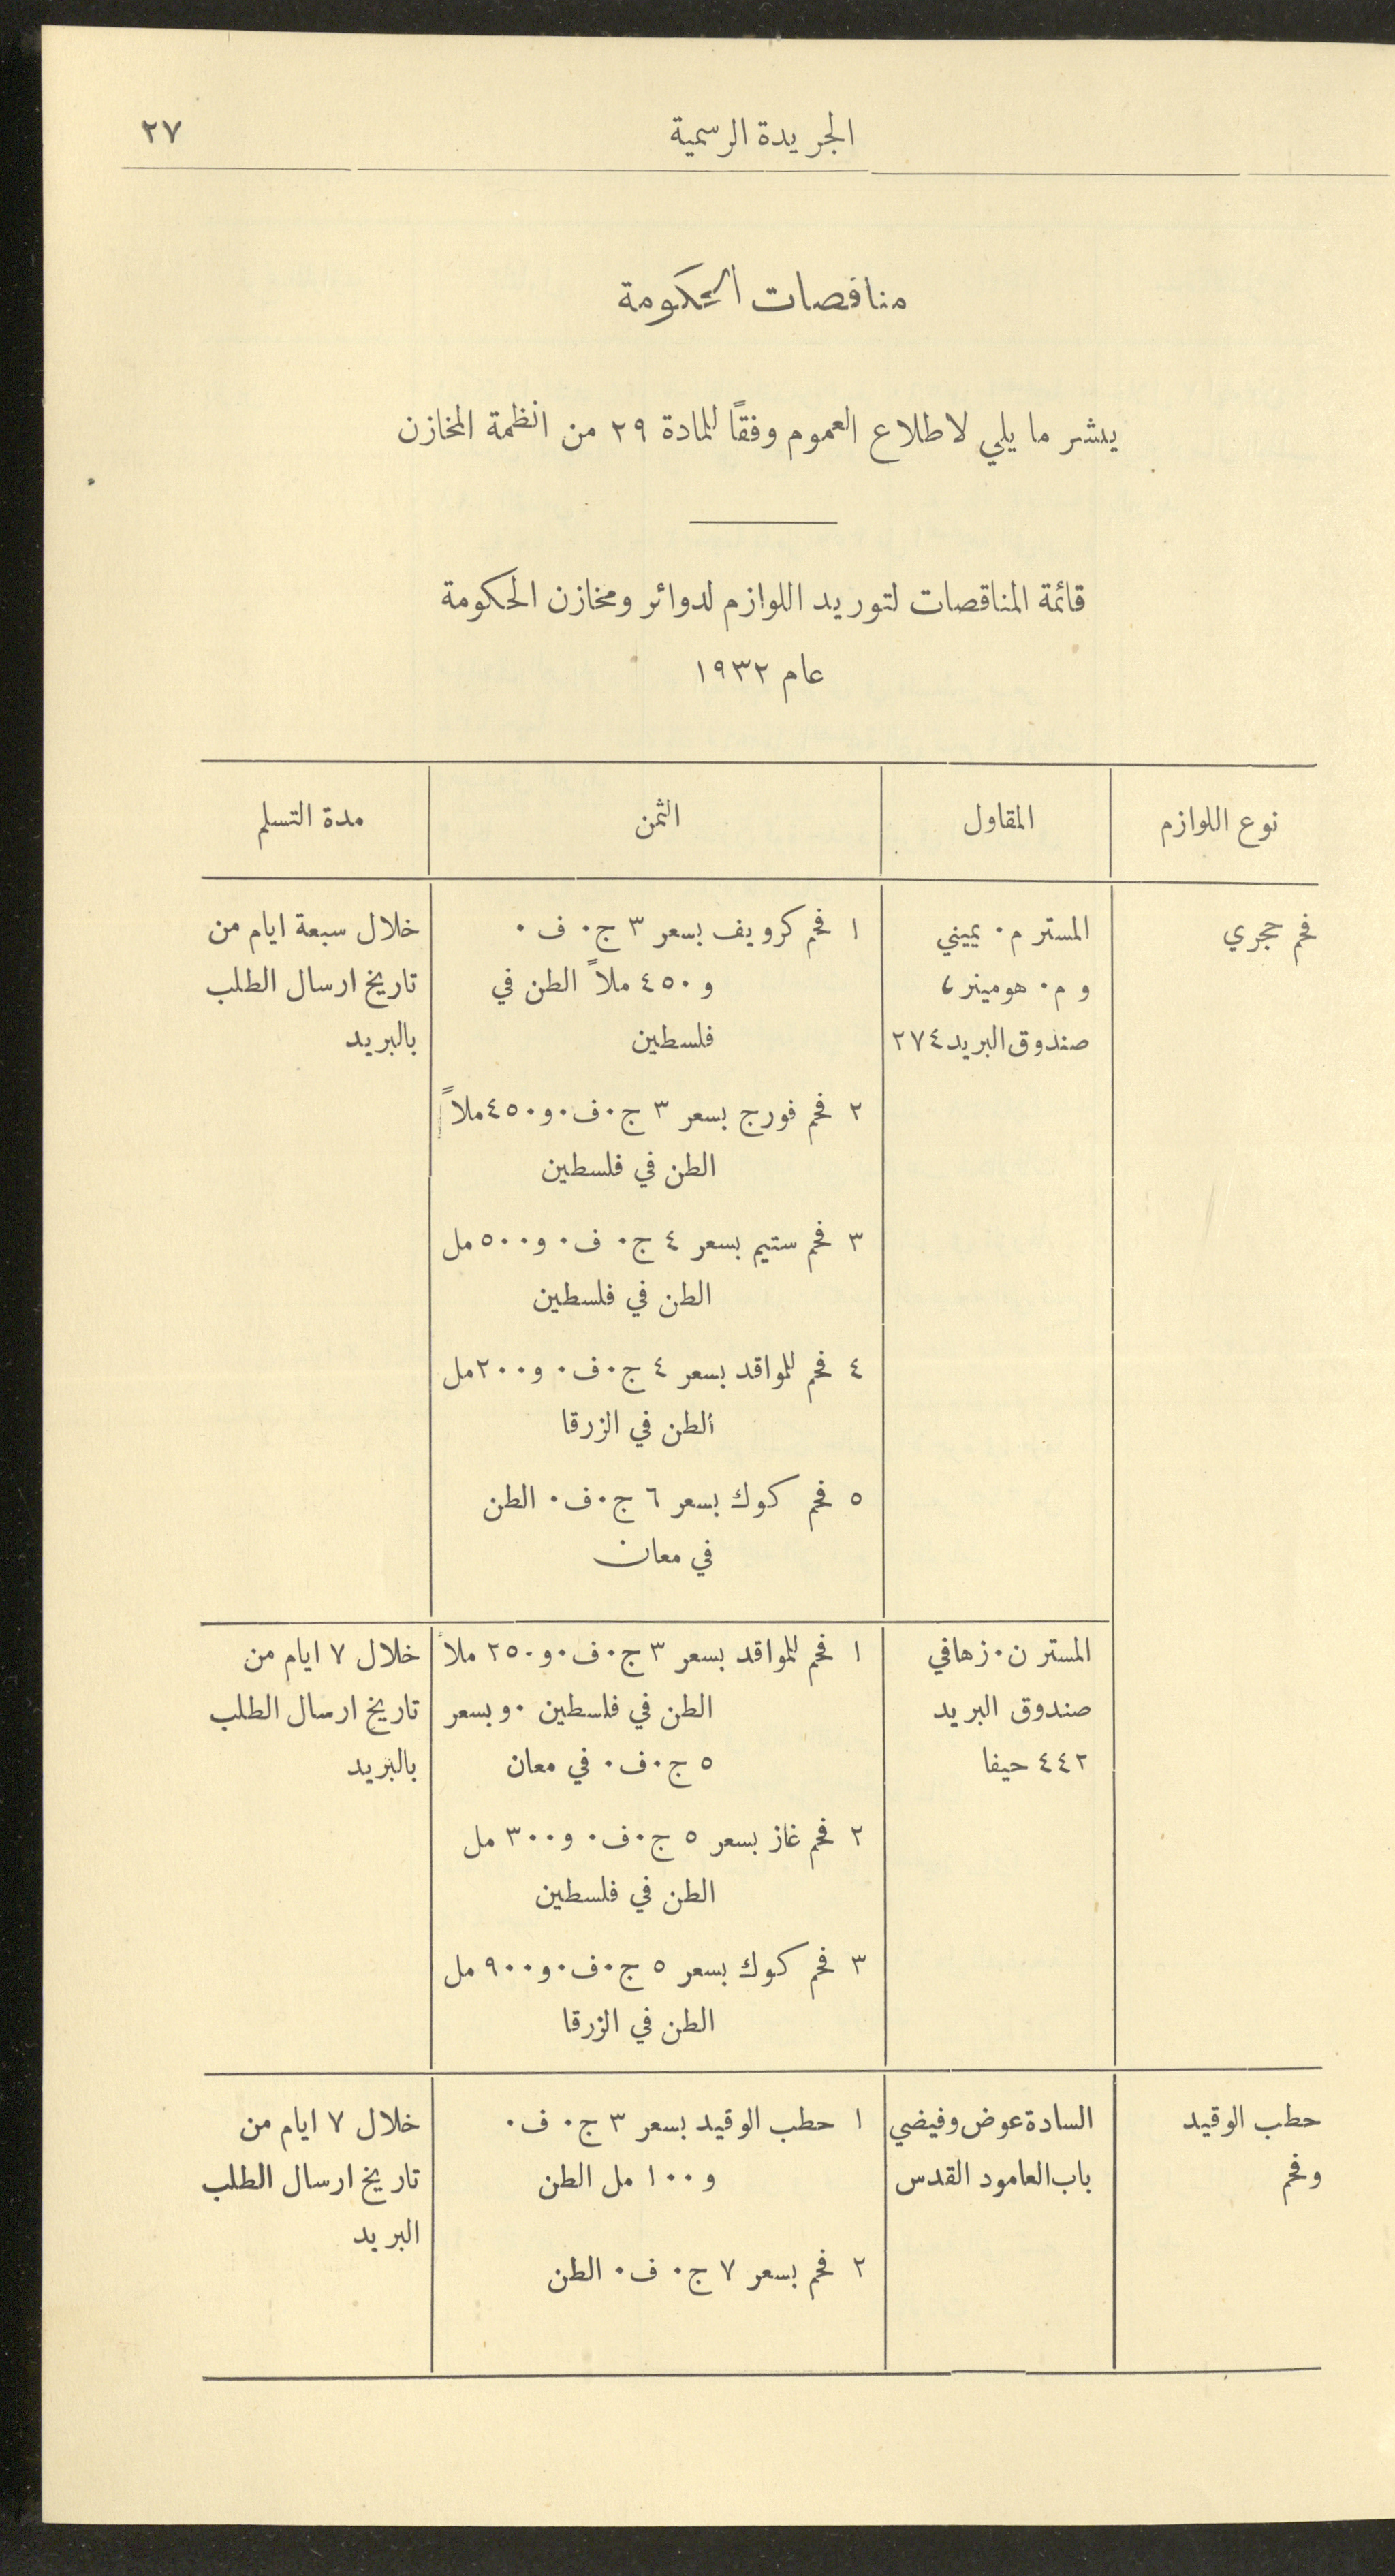 الجريدة الرسمية
٢٧
مناقصات الحكومة
ينشر ما يلي لاطلاع العموم وفقاً للمادة ٢٩ من انظمة المخازن
قائمة المناقصات لتوريد اللوازم لدوائر ومخازن الحكومة
عام ١٩٣٢
نوع اللوازم
المقاول
الثمن
مدة التسلم
فحم حجري
المستر م. يميني
و م. هومينر،
صندوق البريد ٢٧٤
١ فحم كرويف بسعر ٣ ج. ف.
و ٤٥٠ ملاً الطن في
فلسطين
٢ فحم فورج بسعر ٣ ج.ف. و ٤٥٠ ملاً
الطن في فلسطين
٣ فحم ستيم بسعر ٤ ج. ف. و ٥٠٠ مل
الطن في فلسطين
٤ فحم للمواقد بسعر ٤ ج.ف. و ٢٠٠ مل
الطن في الزرقا
٥ فحم كوك بسعر ٦ ج.ف. الطن
في معان
خلال سبعة ايام من
تاريخ ارسال الطلب
بالبريد
المستر ن. زهافي
صندوق البريد
٤٤٢ حيفا
١ فحم للمواقد بسعر ٣ ج.ف. و ٢٥٠ ملاً
الطن في فلسطين . وبسعر
٥ ج.ف. في معان
٢ فحم غاز بسعر ٥ ج.ف. و ٣٠٠ مل
الطن في فلسطين
٣ فحم كوك بسعر ٥ ج.ف. و ٩٠٠ مل
الطن في الزرقا
خلال ٧ ايام من
تاريخ ارسال الطلب
بالبريد
حطب الوقيد
وفحم
السادة عوض وفيضي
باب العامود القدس
١ حطب الوقيد بسعر ٣ ج. ف.
و ١٠٠ مل الطن
٢ فحم بسعر ٧ ج. ف. الطن
خلال ٧ ايام من
تاريخ ارسال الطلب
البريد